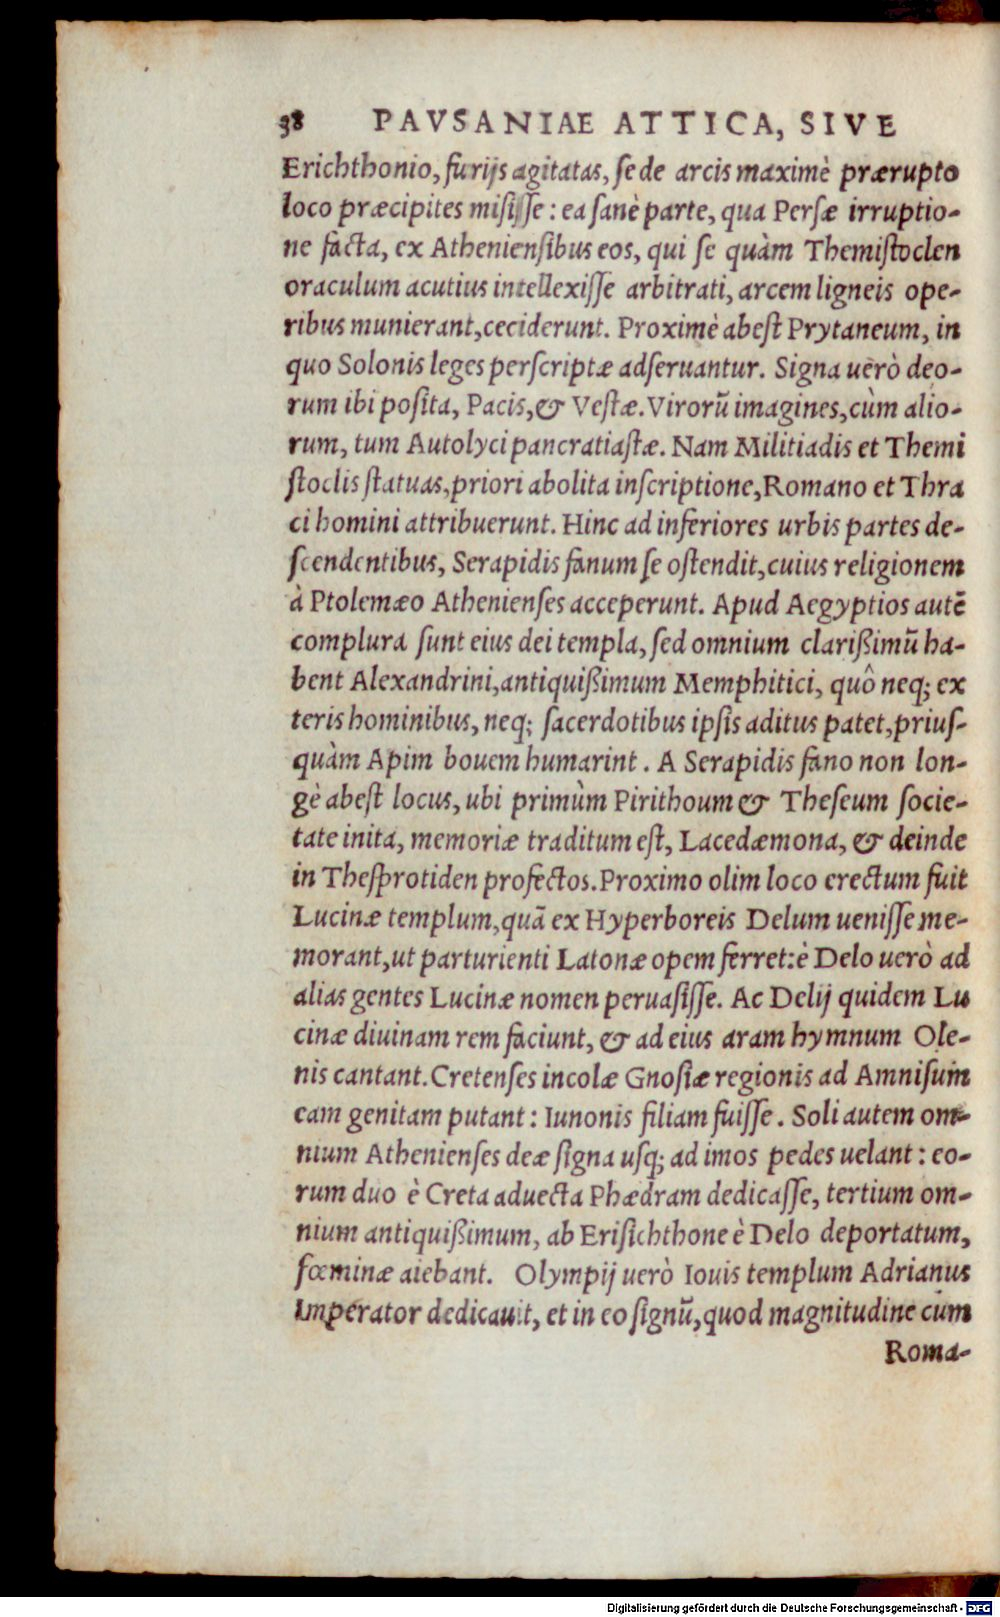 38 PAVSANIAE ATTICA, SIVE
Erichthonio, furijs agitatas, se de arcis maximè prærupto
loco præcipites misisse : ea sanè parte, qua Persæ irruptio-
ne facta, ex Atheniensibus eos, qui se quàm Themistoclen
oraculum acutius intellexisse arbitrati, arcem ligneis ope-
ribus munierant, ceciderunt. Proximè abest Prytaneum, in
quo Solonis leges perscriptæ adseruantur. Signa uerò deo-
rum ibi posita, Pacis, & Vestæ. Virorũ imagines, cùm alio-
rum, tum Autolyci pancratiastæ. Nam Militiadis et Themi
stoclis statuas, priori abolita inscriptione, Romano et Thra
ci homini attribuerunt. Hinc ad inferiores urbis partes de-
scendentibus, Serapidis fanum se ostendit, cuius religionem
à Ptolemæo Athenienses acceperunt. Apud Aegyptios autẽ
complura sunt eius dei templa, sed omnium clarißimũ ha-
bent Alexandrini, antiquißimum Memphitici, quô neq; ex
teris hominibus, neq; sacerdotibus ipsis aditus patet, prius-
quàm Apim bouem humarint. A Serapidis fano non lon-
gè abest locus, ubi primùm Pirithoum & Theseum socie-
tate inita, memoriæ traditum est, Lacedæmona, & deinde
in Thesprotiden profectos. Proximo olim loco erectum fuit
Lucinæ templum, quã ex Hyperboreis Delum uenisse me-
morant, ut parturienti Latonæ opem ferret: è Delo uerò ad
alias gentes Lucinæ nomen peruasisse. Ac Delij quidem Lu
cinæ diuinam rem faciunt, & ad eius aram hymnum Ole-
nis cantant. Cretenses incolæ Gnosiæ regionis ad Amnisum
eam genitam putant : Iunonis filiam fuisse. Soli autem om-
nium Athenienses deæ signa usq; ad imos pedes uelant : eo-
rum duo è Creta aduecta Phædram dedicasse, tertium om-
nium antiquißimum, ab Erisichthone è Delo deportatum,
fœminæ aiebant. Olympij uerò Iouis templum Adrianus
Imperator dedicauit, et in eo signũ, quod magnitudine cùm
Roma-
Digitalisierung gefördert durch die Deutsche Forschungsgemeinschaft - DFG